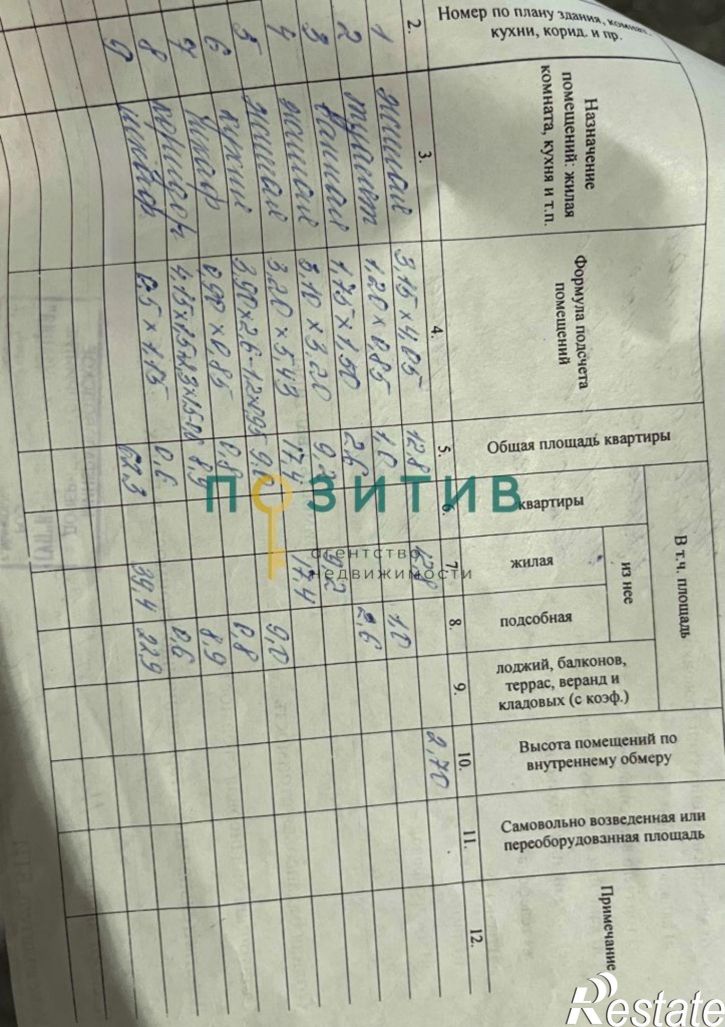 Номер по плану здания, комнат,
кухни, корид. и пр.
Назначение
помещений: жилая
комната, кухня и т.п.
Формула подсчета
помещений
Общая площадь квартиры
В т.ч. площадь
квартиры
из нее
жилая
подсобная
лоджий, балконов,
террас, веранд и
кладовых (с коэф.)
Высота помещений по
внутреннему обмеру
Самовольно возведенная или
переоборудованная площадь
Примечание
2. 3. 4. 5. 6. 7. 8. 9. 10. 11. 12.
1 жилая 3,15 × 4,05 12,8 12,8 2,70
2 туалет 1,20 × 0,85 1,0 1,0
3 ванная 1,75 × 1,50 2,6 2,6
4 жилая 3,20 9,2
5 жилая 3,20 × 5,43 17,4 17,4
6 кухня 9,0 9,0
7 шкаф 0,90 × 0,85 0,8 0,8
8 коридор 8,9 8,9
9 шкаф 0,5 × 1,15 0,6 0,6
62,3 39,4 22,9
ПОЗИТИВ
агентство
недвижимости
Restate